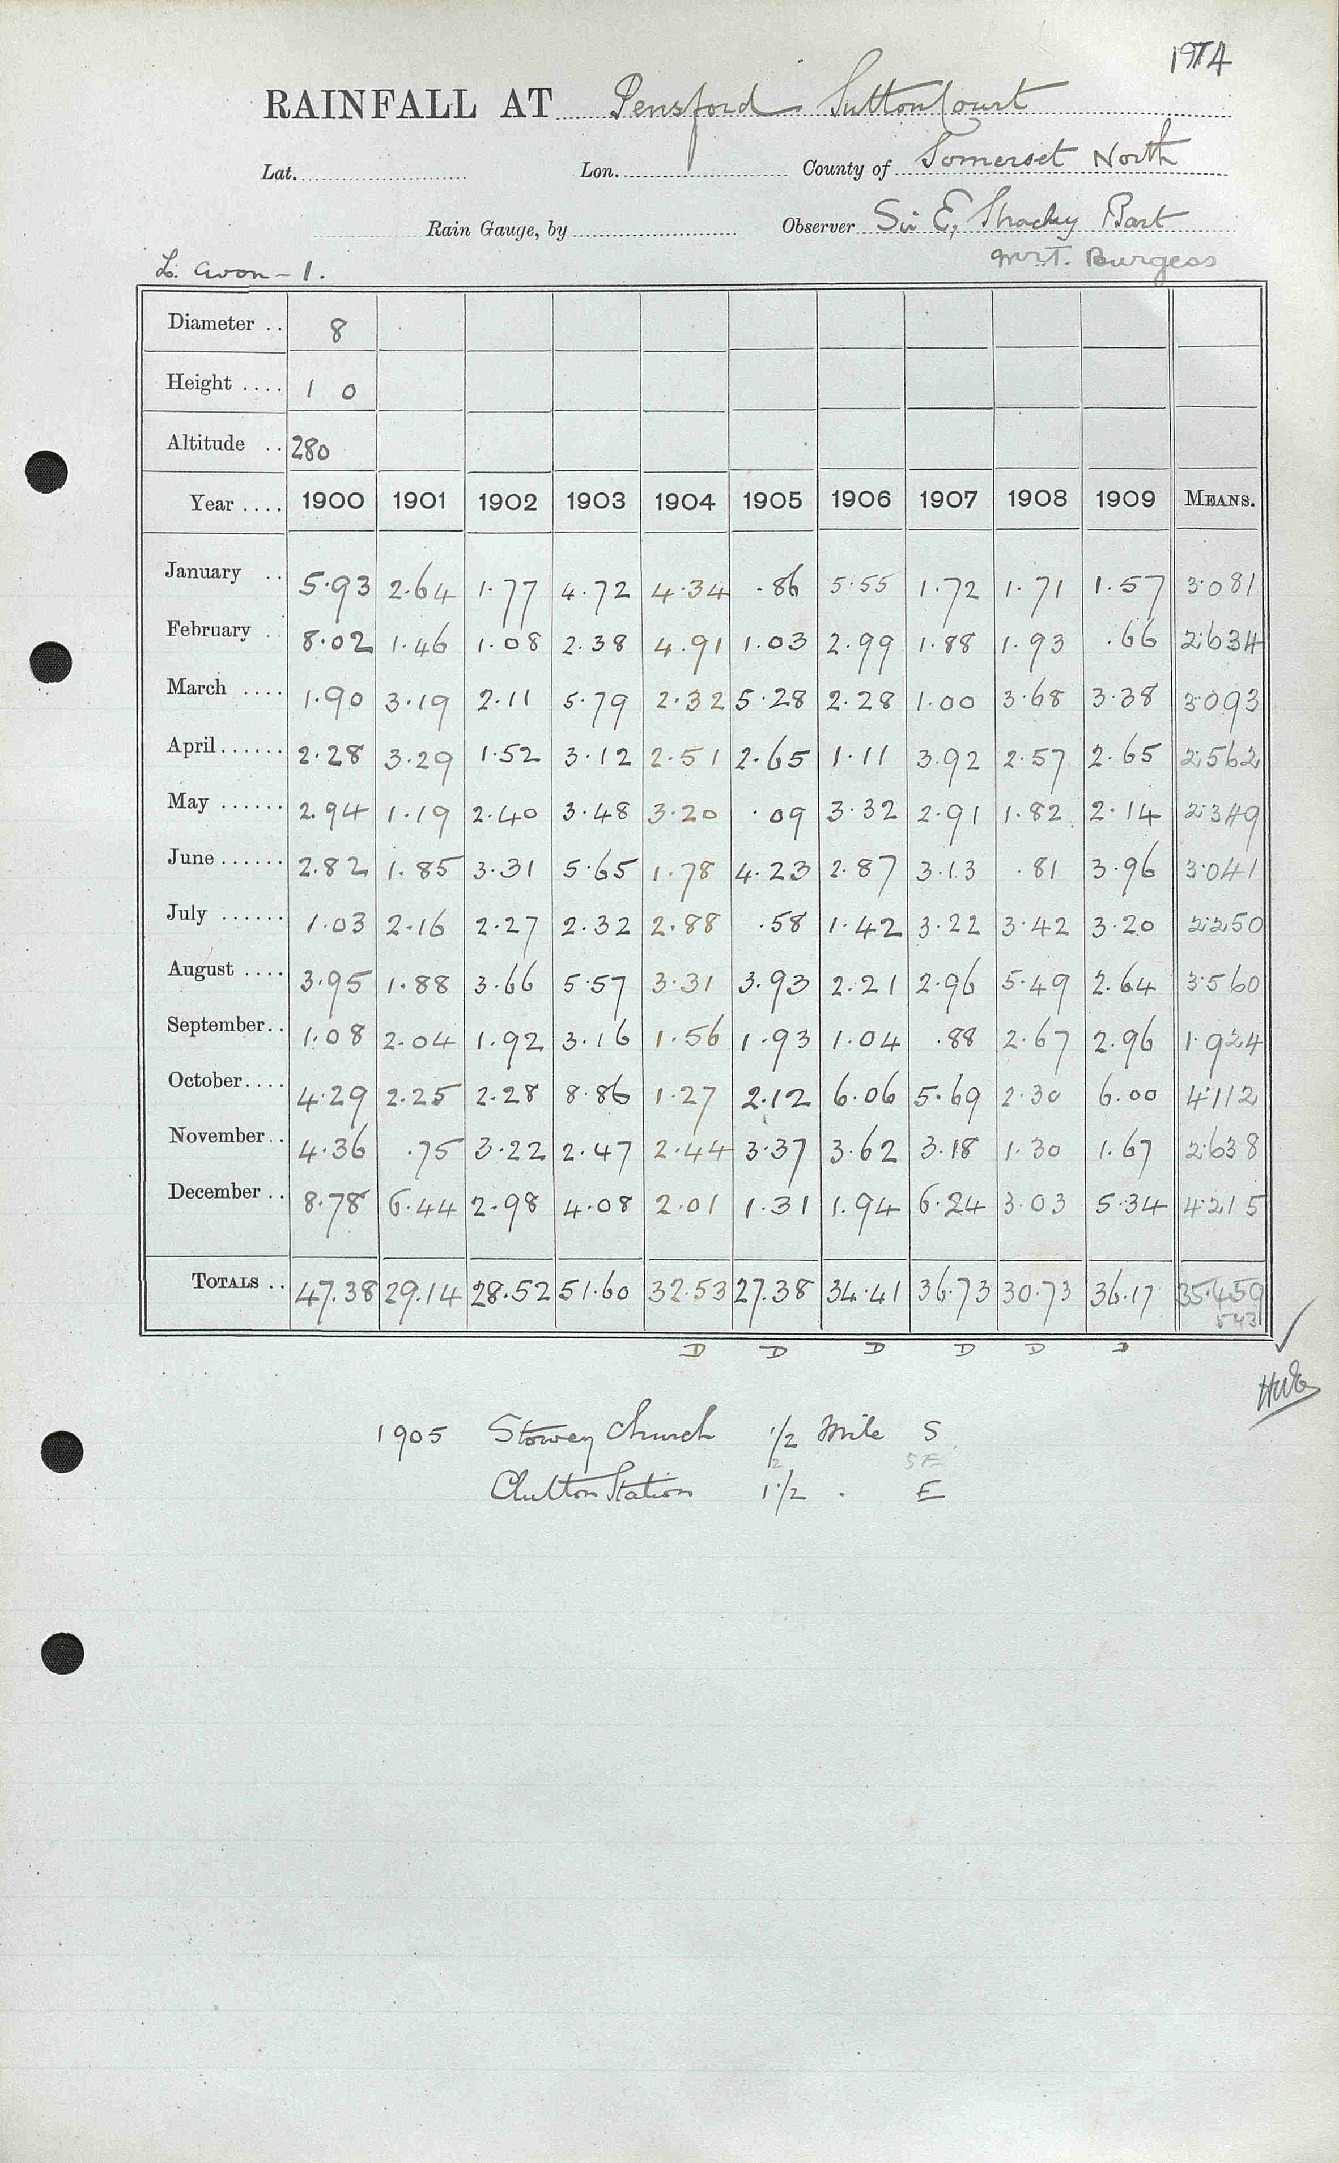 1974
RAINFALL AT Pensford Sutton Court
Lat. Lon. County of Somerset North
Rain Gauge, by Observer Sir E, Strachey Bart
Mr T. Burgess
L. Avon - 1.
Diameter .. 8
Height .... 1 0
Altitude .. 280
Year .... 1900 1901 1902 1903 1904 1905 1906 1907 1908 1909 MEANS.
January .. 5.93 2.64 1.77 4.72 4.34 .86 5.55 1.72 1.71 1.57 3.081
February .. 8.02 1.46 1.08 2.38 4.91 1.03 2.99 1.88 1.93 .66 2.634
March .... 1.90 3.19 2.11 5.79 2.32 5.28 2.28 1.00 3.68 3.38 3.093
April ...... 2.28 3.29 1.52 3.12 2.51 2.65 1.11 3.92 2.57 2.65 2.562
May ...... 2.94 1.19 2.40 3.48 3.20 .09 3.32 2.91 1.82 2.14 2.349
June ...... 2.82 1.85 3.31 5.65 1.78 4.23 2.87 3.13 .81 3.96 3.041
July ...... 1.03 2.16 2.27 2.32 2.88 .58 1.42 3.22 3.42 3.20 2.250
August .... 3.95 1.88 3.66 5.57 3.31 3.93 2.21 2.96 5.49 2.64 3.560
September .. 1.08 2.04 1.92 3.16 1.56 1.93 1.04 .88 2.67 2.96 1.924
October .... 4.29 2.25 2.28 8.86 1.27 2.12 6.06 5.69 2.30 6.00 4.112
November .. 4.36 .75 3.22 2.47 2.44 3.37 3.62 3.18 1.30 1.67 2.638
December .. 8.78 6.44 2.98 4.08 2.01 1.31 1.94 6.24 3.03 5.34 4.215
TOTALS .. 47.38 29.14 28.52 51.60 32.53 27.38 34.41 36.73 30.73 36.17 35.459
543
D D D D D D
1905 Stowey Church 1/2 Mile S
2 SE
Clutton Station 1 1/2 . E